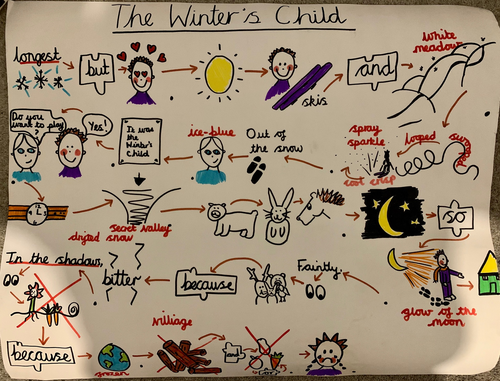 The Winter's Child
longest
but
skis
and
White
meadow
swooped
looped
spray
sparkle
cool crisp
Out of
the snow
ice-blue
It was
the
Winter's
Child
Yes!
Do you
want to play
drifted snow
secret valley
so
glow of the
moon
Faintly
because
bitter
In the shadow,
because
frozen
villiage
and